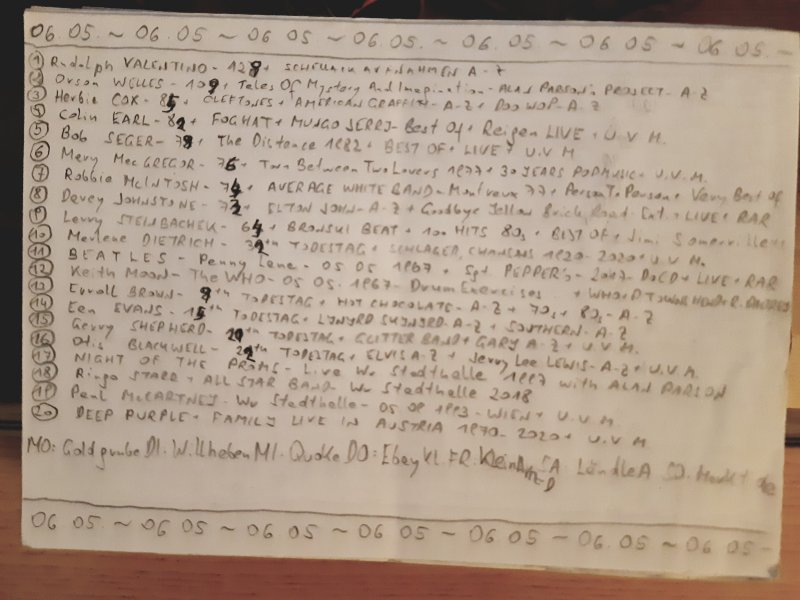 06. 05. ~ 06. 05. ~ 06. 05. ~ 06. 05. ~ 06. 05. ~ 06. 05. ~ 06. 05. ~
1 Rudolph VALENTINO - 128 + SCHELLACK AUFNAHMEN A-Z
2 Orson WELLES - 109 + Tales Of Mystery And Imagination - ALAN PARSON'S PROJECT - A-Z
3 Herbie COX - 85 + CLEFTONES + AMERICAN GRAFFITI - A-Z + DOO WOP - A-Z
4 Colin EARL - 82 + FOGHAT + MUNGO JERRY - Best Of + Reigen LIVE + U.V.M.
5 Bob SEGER - 79 + The Distance 1982 + BEST OF + LIVE + U.V.M
6 Mery MacGREGOR - 76 + Torn Between Two Lovers 1977 + 30 YEARS POPMUSIC + U.V.M.
7 Robbie McINTOSH - 74 + AVERAGE WHITE BAND - Montreux 77 + Person To Person + Very Best of
8 Davey JOHNSTONE - 73 + ELTON JOHN - A-Z + Goodbye Yellow Brick Road - Ent. + LIVE + RAR
9 Larry STEINBACHEK - 64 + BRONSKI BEAT + 100 HITS 80s + BEST OF + Jimi Somerville
10 Merlene DIETRICH - 32th TODESTAG + SCHLAGER, CHANSONS 1920-2020 + U.V.M
11 BEATLES - Penny Lane - 05 05 1967 + Sgt. PEPPER'S - 2017 - DOCD + LIVE + RAR
12 Keith Moon - The WHO - 05 05. 1967 - Drum Exercises . + WHO + P TOWNSHEND + R. DALTREY
13 Erroll BROWN - 9th TODESTAG + HOT CHOCOLATE - A-Z + 70s, + 80s, - A-Z
14 Ean EVANS - 15th TODESTAG + LYNYRD SKYNYRD - A-Z + SOUTHERN - A-Z
15 Gerry SHEPHERD - TODESTAG + GLITTER BAND + GARY A-Z + U.V.M.
16 Otis BLACKWELL - 22th TODESTAG + ELVIS A-Z + Jerry Lee LEWIS - A-Z + U.V.M.
17 NIGHT OF THE PROMS - Live Wr Stadthalle 1997 with ALAN PARSON
18 Ringo STARR + ALL STAR BAND - Wr Stadthalle 2018
19 Paul McCARTNEY - Wr Stadthalle - 05. 09 1993 - WIEN + U.V.M.
20 DEEP PURPLE + FAMILY LIVE IN AUSTRIA 1970-2020 + U.V.M
MO: Goldgrube DI. Willheben MI. Quoke DO: Ebay Kl. FR. KleinAnz SA. LändleA SO. Markt de
06 05 ~ 06 05 ~ 06 05 ~ 06 05 ~ 06 05 ~ 06 05 ~ 06 05 ~